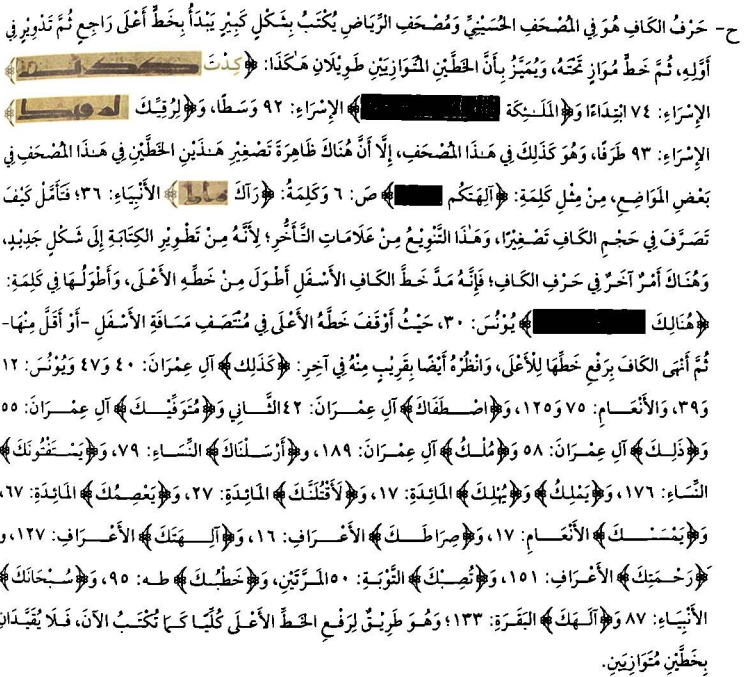 ح- حَرْفُ الكَافِ هُوَ فِي المُصْحَفِ الحُسَيْنِيِّ وَمُصْحَفِ الرِّيَاضِ يُكْتَبُ بِشَكْلٍ كَبِيْرٍ يَبْدَأُ بِخَطٍّ أَعْلَى رَاجِعٍ ثُمَّ تَدْوِيْرٍ فِي
أَوَّلِهِ، ثُمَّ خَطٍّ مُوَازٍ تَحْتَهُ، وَيُمَيَّزُ بِأَنَّ الخَطَّيْنِ المُتَوَازِيَيْنِ طَوِيْلَانِ هَكَذَا: ﴿كِدْتَ ﴾
الإِسْرَاءِ: ٧٤ ابْتِدَاءًا وَ﴿المَلَـٰئِكَة ﴾ الإِسْرَاءِ: ٩٢ وَسَطًا، وَ﴿لِرُقِيِّكَ ﴾
الإِسْرَاءِ: ٩٣ طَرَفًا، وَهُوَ كَذَلِكَ فِي هَـٰذَا المُصْحَفِ، إِلَّا أَنَّ هُنَاكَ ظَاهِرَةَ تَصْغِيْرِ هَـٰذَيْنِ الخَطَّيْنِ فِي هَـٰذَا المُصْحَفِ فِي
بَعْضِ المَوَاضِعِ، مِنْ مِثْلِ كَلِمَةِ: ﴿آلِهَتَكُم ﴾ صَ: ٦ وَكَلِمَةُ: ﴿رَآكَ ﴾ الأَنْبِيَاءِ: ٣٦؛ فَتَأَمَّلْ كَيْفَ
تَصَرَّفَ فِي حَجْمِ الكَافِ تَصْغِيْرًا، وَهَـٰذَا التَّنْوِيْعُ مِنْ عَلَامَاتِ التَّأَخُّرِ؛ لِأَنَّهُ مِنْ تَطْوِيْرِ الكِتَابَةِ إِلَى شَكْلٍ جَدِيْدٍ،
وَهُنَاكَ أَمْرٌ آخَرُ فِي حَرْفِ الكَافِ؛ فَإِنَّهُ مَدَّ خَطَّ الكَافِ الأَسْفَلِ أَطْوَلَ مِنْ خَطِّهِ الأَعْلَى، وَأَطْوَلُهَا فِي كَلِمَةِ:
﴿هُنَالِكَ ﴾ يُوْنُسَ: ٣٠، حَيْثُ أَوْقَفَ خَطَّهُ الأَعْلَى فِي مُنْتَصَفِ مَسَافَةِ الأَسْفَلِ -أَوْ أَقَلَّ مِنْهَا-
ثُمَّ أَنْهَى الكَافَ بِرَفْعِ خَطِّهَا لِلْأَعْلَى، وَانْظُرْهُ أَيْضًا بِقَرِيْبٍ مِنْهُ فِي آخِرِ: ﴿كَذَلِكَ﴾ آلِ عِمْرَانَ: ٤٠ وَ٤٧ وَيُوْنُسَ: ١٢
وَ٣٩، وَالأَنْعَـامِ: ٧٥ وَ١٢٥، وَ﴿اصْـطَفَاكَ﴾ آلِ عِمْـرَانَ: ٤٢ الثَّـانِي وَ﴿مُتَوَفِّيْـكَ﴾ آلِ عِمْـرَانَ: ٥٥
وَ﴿ذَلِكَ﴾ آلِ عِمْرَانَ: ٥٨ وَ﴿مُلْكُ﴾ آلِ عِمْرَانَ: ١٨٩، وَ﴿أَرْسَلْنَاكَ﴾ النِّسَاءِ: ٧٩، وَ﴿يَسْتَفْتُونَكَ﴾
النِّسَاءِ: ١٧٦، وَ﴿يَمْلِكُ﴾ وَ﴿يُهْلِكَ﴾ المَائِدَةِ: ١٧، وَ﴿لَأَقْتُلَنَّكَ﴾ المَائِدَةِ: ٢٧، وَ﴿يَعْصِمُكَ﴾ المَائِدَةِ: ٦٧،
وَ﴿يَمْسَسْـكَ﴾ الأَنْعَـامِ: ١٧، وَ﴿صِرَاطَـكَ﴾ الأَعْـرَافِ: ١٦، وَ﴿آلِـهَتَكَ﴾ الأَعْـرَافِ: ١٢٧، و
﴿رَحْمَتِكَ﴾ الأَعْرَافِ: ١٥١، وَ﴿تُصِبْكَ﴾ التَّوْبَةِ: ٥٠ المَـرَّتَيْنِ، وَ﴿خَطْبُكَ﴾ طـه: ٩٥، وَ﴿سُبْحَانَكَ﴾
الأَنْبِيَاءِ: ٨٧ وَ﴿آلَـهَكَ﴾ البَقَرَةِ: ١٣٣؛ وَهُوَ طَرِيْقٌ لِرَفْعِ الخَطِّ الأَعْلَى كُلِّيًا كَمَا تُكْتَبُ الآنَ، فَلَا يُقَيَّدَانِ
بِخَطَّيْنِ مُتَوَازِيَيْنِ.